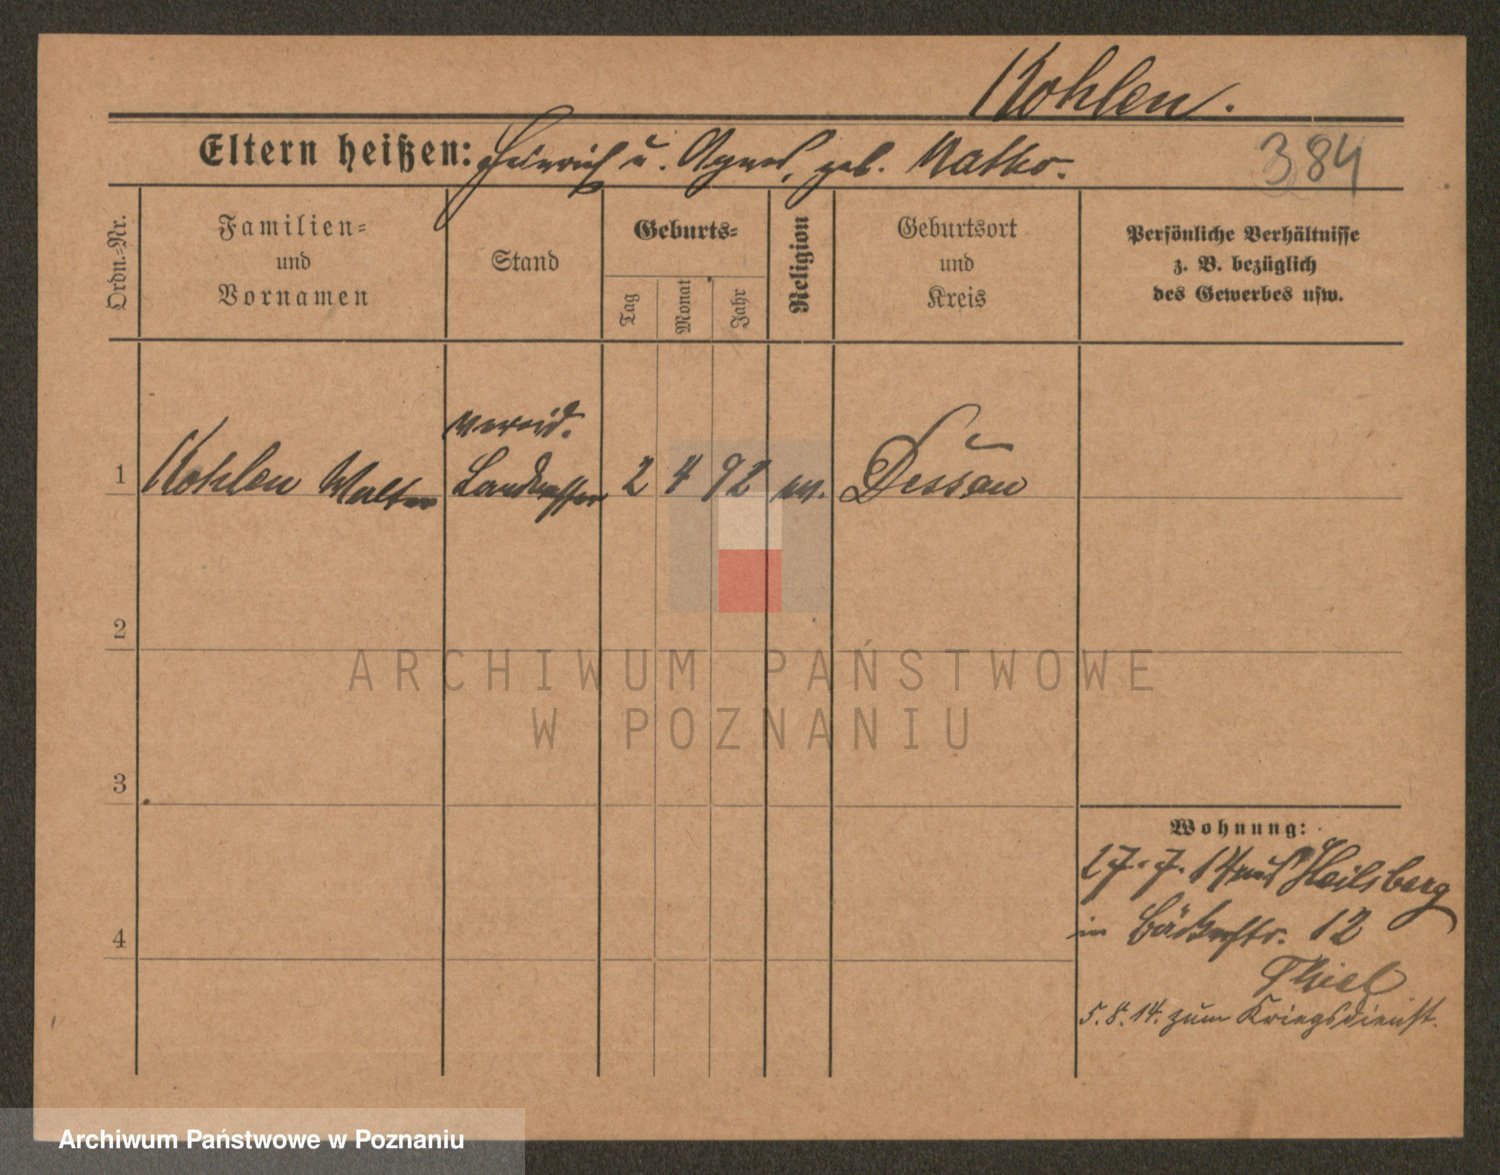 Kohlen.
Eltern heißen: Heinrich u. Agnes, geb. Natho.
384
Ordn.-Nr.
Familien-
und
Vornamen
Stand
Geburts-
Tag
Monat
Jahr
Religion
Geburtsort
und
Kreis
Persönliche Verhältnisse
z. B. bezüglich
des Gewerbes usw.
vereid.
1 Kohlen Walter Landmesser 2 4 92 ev. Dessau
2
3
4
Wohnung:
27. 7. 14 aus Heilsberg
in Bäckerstr. 12
Thiel
5. 8. 14. zum Kriegsdienst.
ARCHIWUM PAŃSTWOWE
W POZNANIU
Archiwum Państwowe w Poznaniu